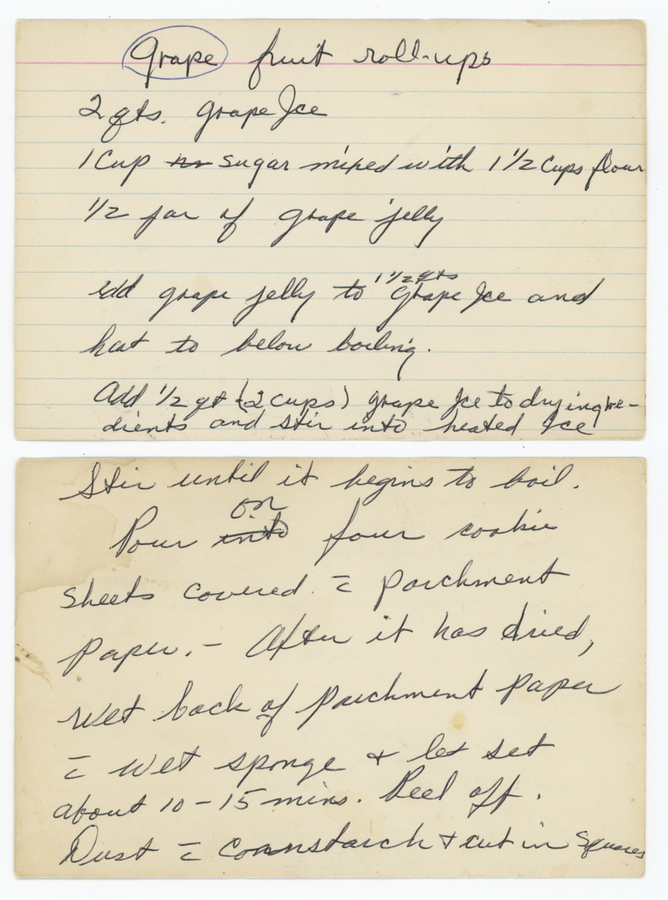 Grape fruit roll-ups
2 qts. grape Ice
1 Cup sugar mixed with 1 1/2 Cups flour
1/2 jar of grape jelly
1 1/2 qts
add grape jelly to Grape Ice and
heat to below boiling.
Add 1/2 qt (2 cups) grape Ice to drying re-
dients and stir into heated Ice
Stir until it begins to boil.
on
Pour into four cookie
sheets covered c̄ parchment
paper. - After it has dried,
wet back of parchment paper
c̄ wet sponge + let set
about 10-15 mins. Peel off.
Dust c̄ cornstarch + cut in squares